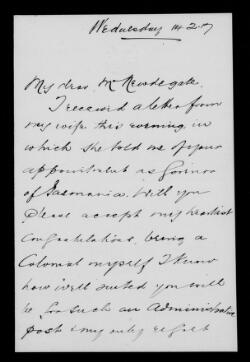 Wednesday
My dear Mr Newdegate
I received a letter from
my wife this evening in
which she told me of your
appointment as Governor
of Tasmania. Will you
Please accept my heartiest
Congratulations, being a
Colonial myself I know
how well suited you will
be for such an Administrative
post & my only regret